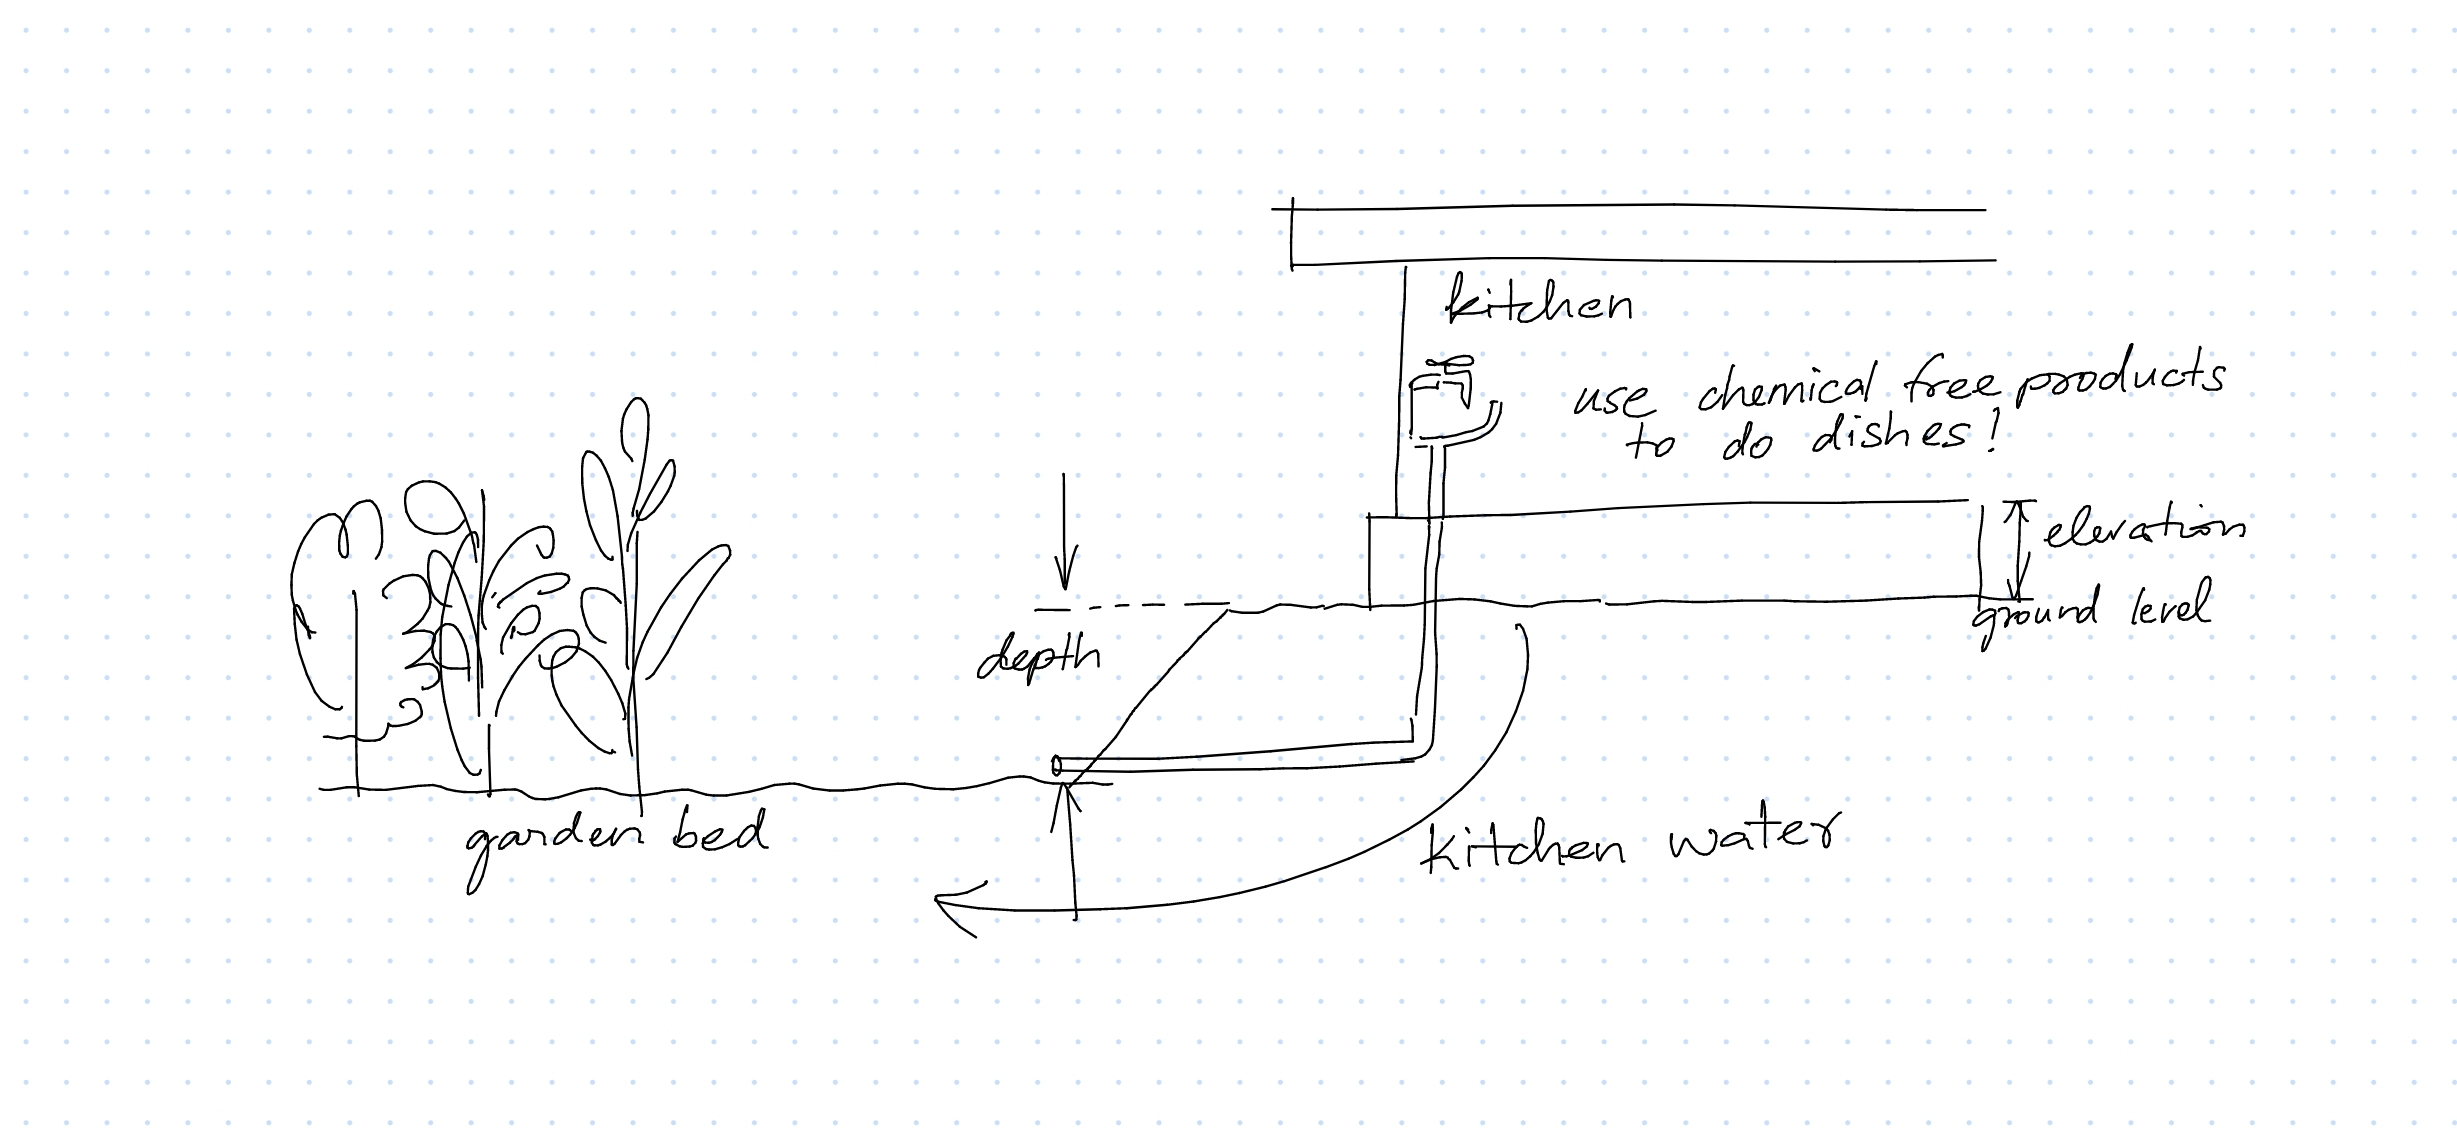 kitchen
use chemical free products
to do dishes!
elevation
ground level
depth
garden bed
kitchen water